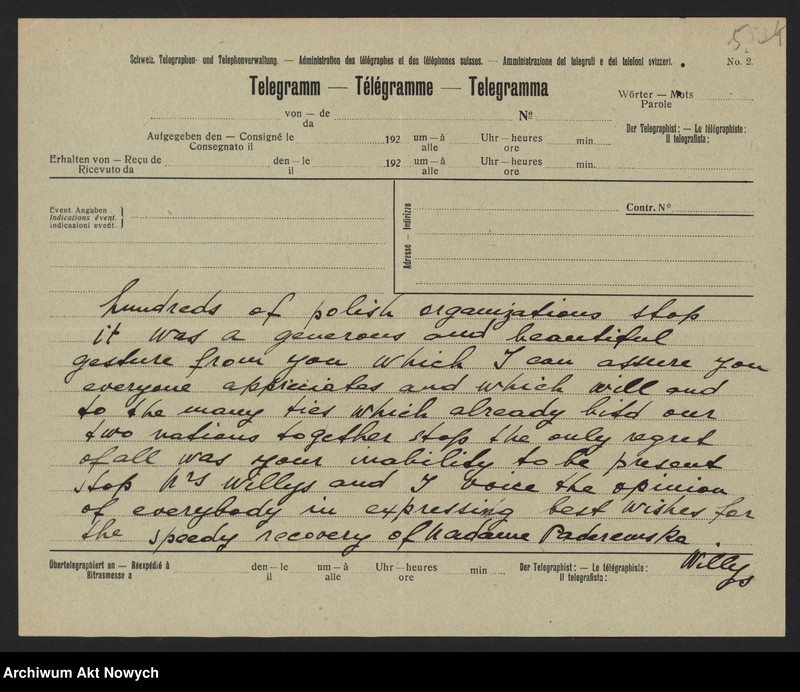 Schweiz. Telegraphen- und Telephonverwaltung. — Administration des télégraphes et des téléphones suisses. — Amministrazione dei telegrafi e dei telefoni svizzeri.
No. 2.
Telegramm — Télégramme — Telegramma
Wörter — Mots
Parole
von — de
da
Nº
Aufgegeben den — Consigné le 192 um — à Uhr — heures min.
Consegnato il alle ore
Der Telegraphist: — Le télégraphiste:
Il telegrafista:
Erhalten von — Reçu de den — le 192 um — à Uhr — heures min.
Ricevuto da il alle ore
Event. Angaben
Indications évent.
indicazioni event.
Adresse — Indirizzo
Contr. Nº
hundreds of polish organizations stop
it was a generous and beautiful
gesture from you which I can assure you
everyone appriciates and which will and
to the many ties which already bitd our
two nations together stop the only regret
of all was your inability to be present
stop Mrs Willys and I voice the opinion
of everybody in expressing best wishes for
the speedy recovery of Madame Paderewska.
Willys
Übertelegraphiert an — Réexpédié à den — le um — à Uhr — heures min Der Telegraphist: — Le télégraphiste:
Ritrasmesse a il alle ore Il telegrafista:
Archiwum Akt Nowych